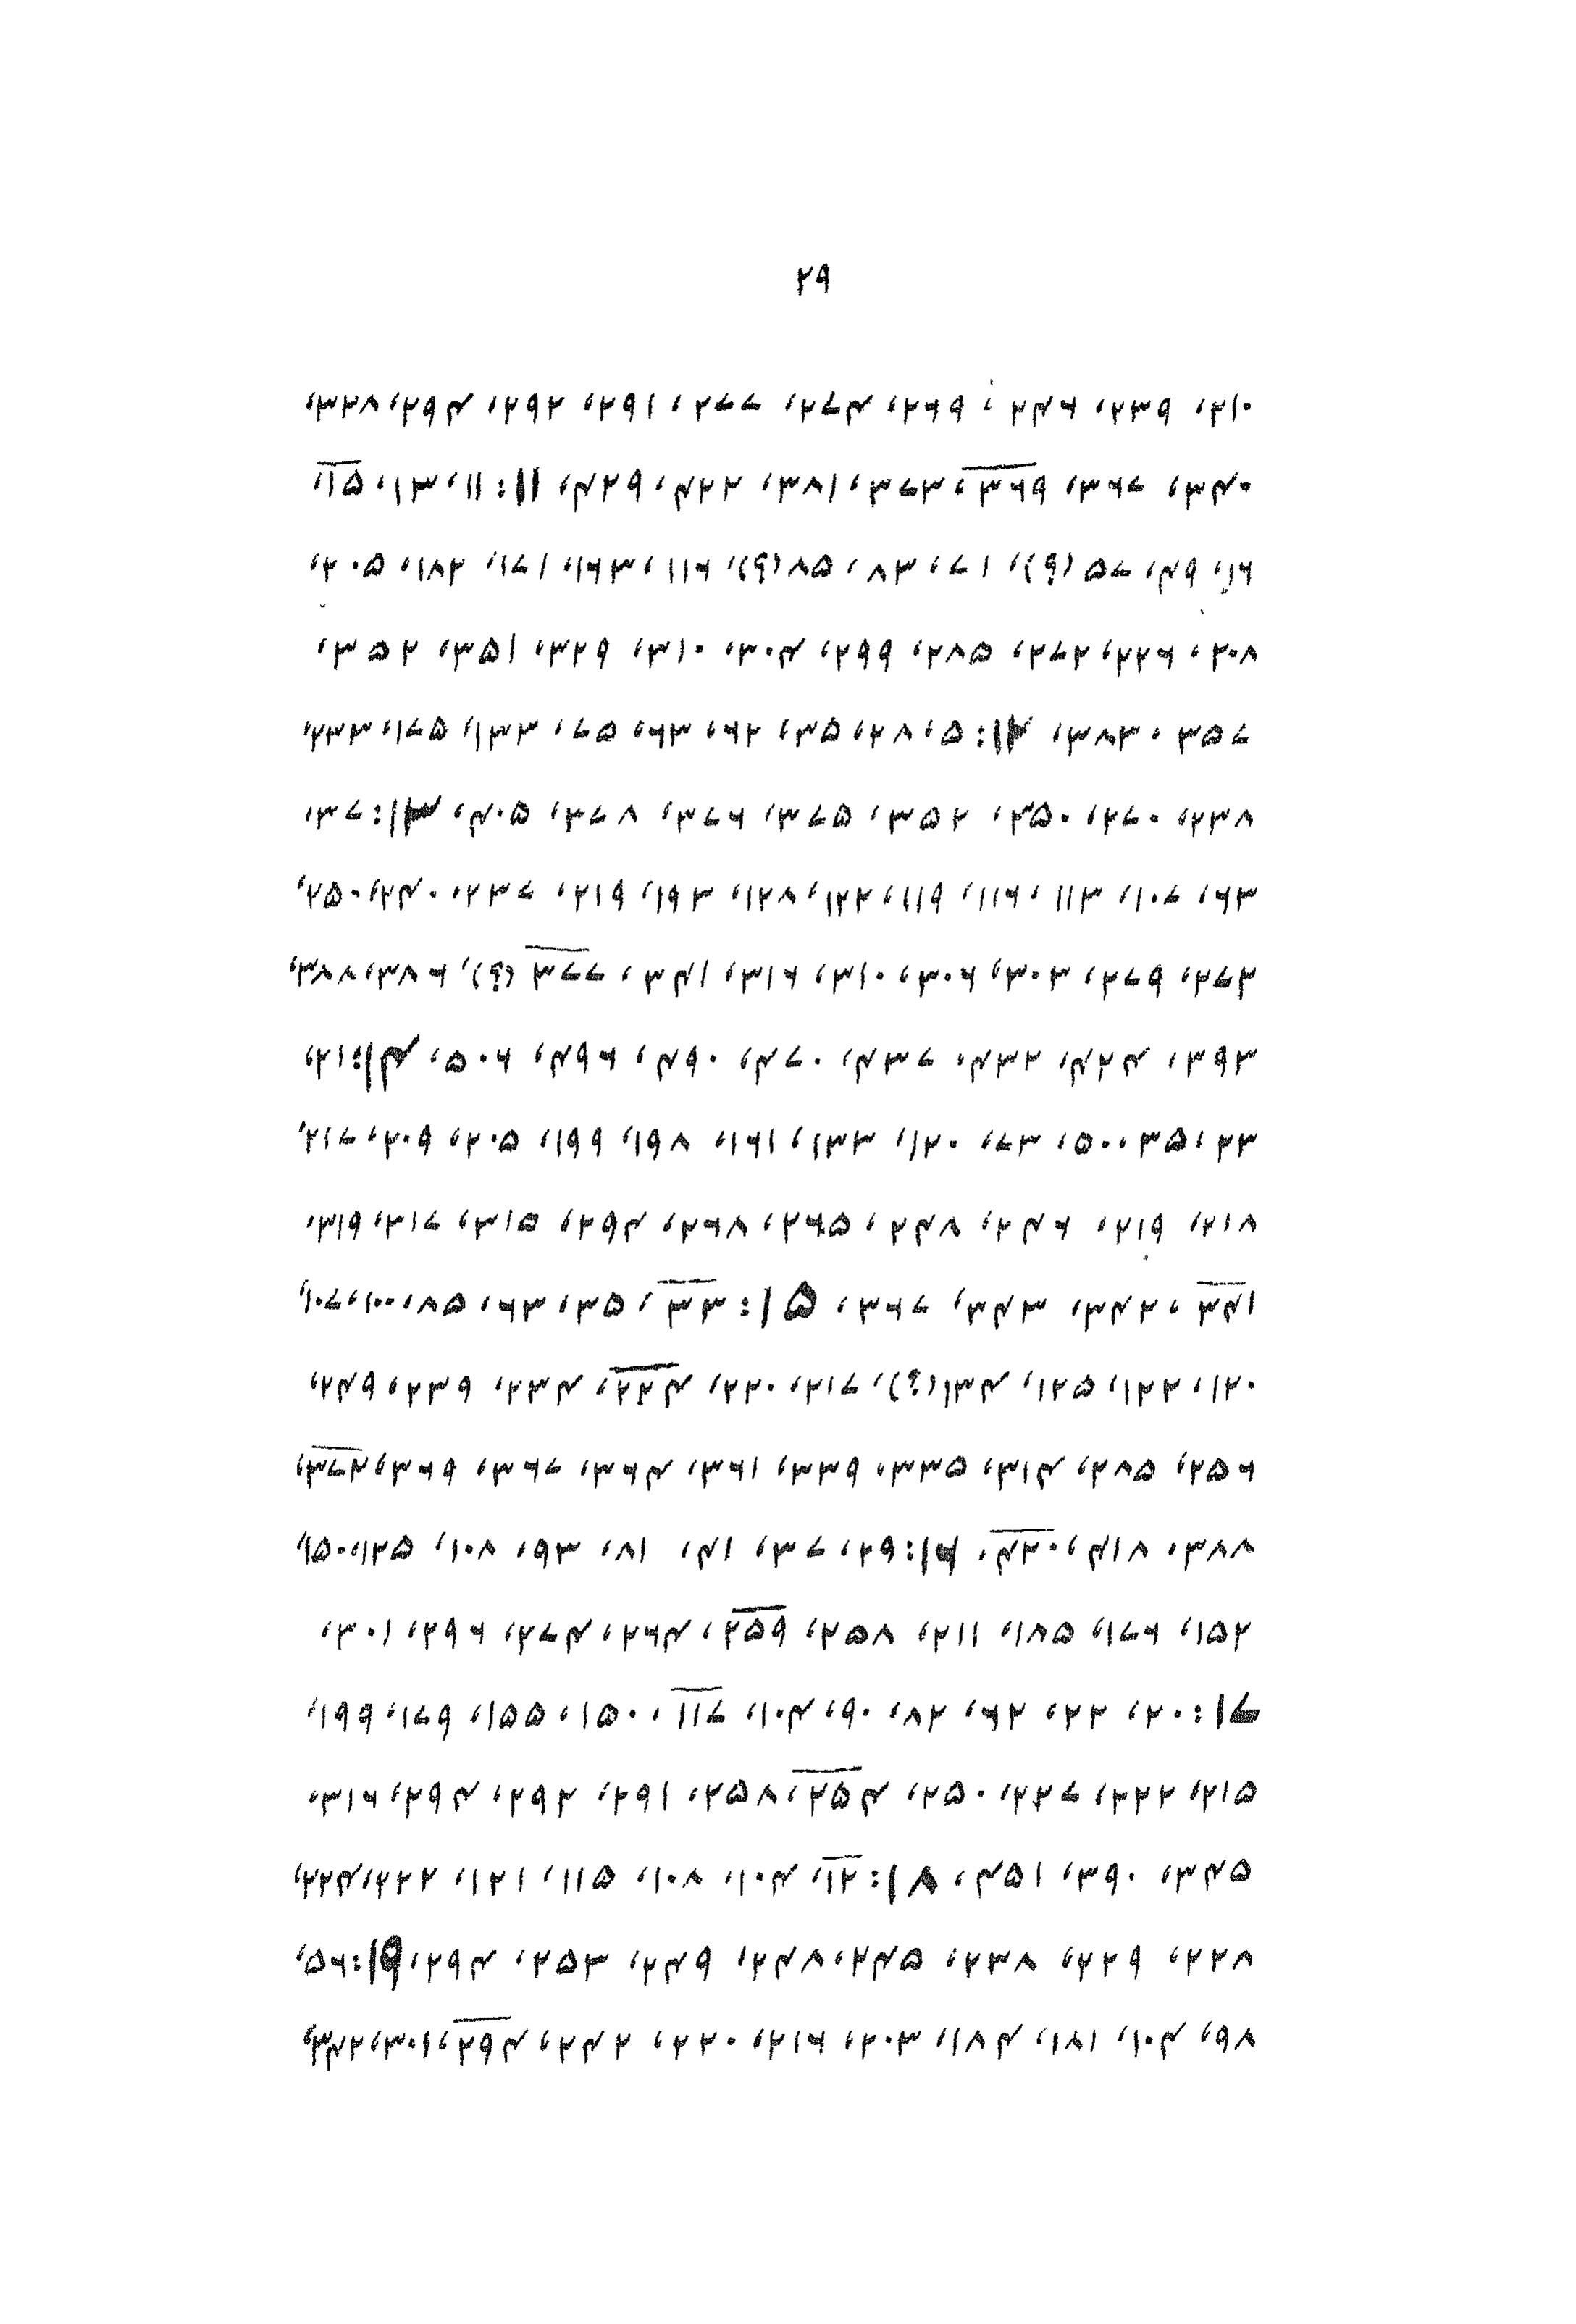 ۲۹
۲۱۰، ۲۳۹، ۲۴۶، ۲۶۹، ۲۷۴، ۲۷۷، ۲۹۱، ۲۹۲، ۲۹۴، ۳۲۸،
۳۴۰، ۳۶۷، ۳۶۹، ۳۷۳، ۳۸۱، ۴۲۲، ۴۲۹، ۱۱: ۱۱، ۱۳، ۱۵،
۱۶، ۴۹، ۵۷ (؟)، ۷۱، ۸۳، ۸۵(؟)، ۱۱۶، ۱۶۳، ۱۷۱، ۱۸۲، ۲۰۵،
۲۰۸، ۲۲۶، ۲۷۲، ۲۸۵، ۲۹۹، ۳۰۴، ۳۱۰، ۳۲۹، ۳۵۱، ۳۵۲،
۳۵۷، ۳۸۳، ۱۲: ۵، ۲۸، ۳۵، ۶۲، ۶۳، ۷۵، ۱۳۳، ۱۷۵، ۲۳۳،
۲۳۸، ۲۷۰، ۳۵۰، ۳۵۲، ۳۷۵، ۳۷۶، ۳۷۸، ۴۰۵، ۱۳: ۳۷،
۶۳، ۱۰۷، ۱۱۳، ۱۱۶، ۱۱۹، ۱۲۲، ۱۲۸، ۱۹۳، ۲۱۹، ۲۳۷، ۲۴۰، ۲۵۰،
۲۷۳، ۲۷۹، ۳۰۳، ۳۰۶، ۳۱۰، ۳۱۶، ۳۴۱، ۳۷۷ (؟)، ۳۸۶، ۳۸۸،
۳۹۳، ۴۲۴، ۴۳۲، ۴۳۷، ۴۷۰، ۴۹۰، ۴۹۶، ۵۰۶، ۱۴: ۲۱،
۲۳، ۳۵، ۵۰، ۷۳، ۱۲۰، ۱۳۳، ۱۶۱، ۱۹۸، ۱۹۹، ۲۰۵، ۲۰۹، ۲۱۷،
۲۱۸، ۲۱۹، ۲۴۶، ۲۴۸، ۲۶۵، ۲۶۸، ۲۹۴، ۳۱۵، ۳۱۷، ۳۱۹،
۳۴۱، ۳۴۲، ۳۴۳، ۳۶۷، ۱۵: ۳۳، ۳۵، ۶۳، ۸۵، ۱۰۰، ۱۰۷،
۱۲۰، ۱۲۲، ۱۲۵، ۱۳۴(؟)، ۲۱۷، ۲۲۰، ۲۲۴، ۲۳۴، ۲۳۹، ۲۴۹،
۲۵۶، ۲۸۵، ۳۱۴، ۳۳۵، ۳۳۹، ۳۶۱، ۳۶۴، ۳۶۷، ۳۶۹، ۳۷۲،
۳۸۸، ۴۱۸، ۴۲۰، ۱۶: ۲۹، ۳۷، ۴۱، ۸۱، ۹۳، ۱۰۸، ۱۲۵، ۱۵۰،
۱۵۲، ۱۷۶، ۱۸۵، ۲۱۱، ۲۵۸، ۲۵۹، ۲۶۴، ۲۷۴، ۲۹۶، ۳۰۱،
۱۷: ۲۰، ۲۲، ۶۲، ۸۲، ۹۰، ۱۰۴، ۱۱۷، ۱۵۰، ۱۵۵، ۱۷۹، ۱۹۹،
۲۱۵، ۲۲۲، ۲۲۷، ۲۵۰، ۲۵۴، ۲۵۸، ۲۹۱، ۲۹۲، ۲۹۴، ۳۱۶،
۳۴۵، ۳۹۰، ۴۵۱، ۱۸: ۱۲، ۱۰۴، ۱۰۸، ۱۱۵، ۱۲۱، ۲۲۲، ۲۲۴،
۲۲۸، ۲۲۹، ۲۳۸، ۲۴۵، ۲۴۸، ۲۴۹، ۲۵۳، ۲۹۴، ۱۹: ۵۶،
۹۸، ۱۰۴، ۱۸۱، ۱۸۴، ۲۰۳، ۲۱۶، ۲۲۰، ۲۴۲، ۲۹۴، ۳۰۱، ۳۴۲،